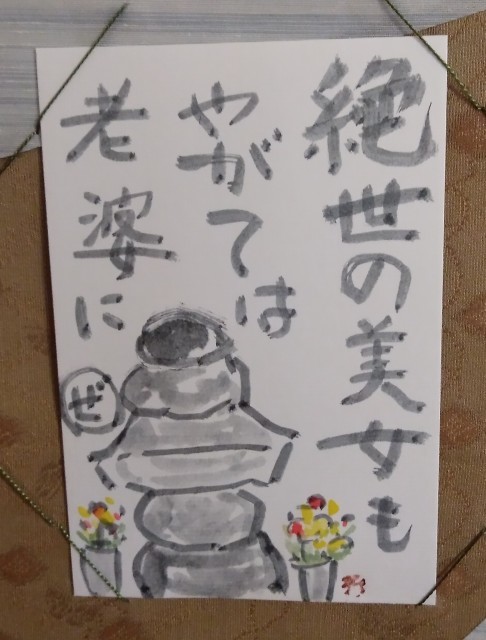 絶世の美女も
やがては
老婆に
ぜ